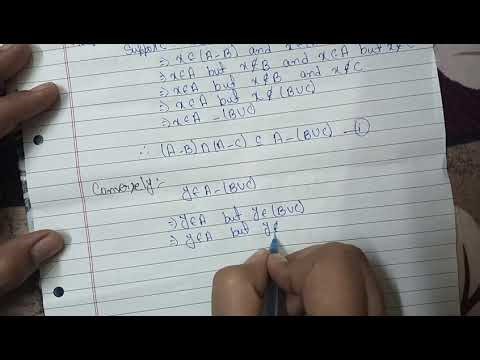 Suppose
⇒ x∈(A-B) and x∈
⇒ x∈A but x∉B and x∈A but x∉C
⇒ x∈A but x∉B and x∉C
⇒ x∈A but x∉(B∪C)
⇒ x∈A-(B∪C)
∴ (A-B)∩(A-C) ⊂ A-(B∪C) —①
Conversely:-
y∈A-(B∪C)
⇒ y∈A but y∉(B∪C)
⇒ y∈A but y∉